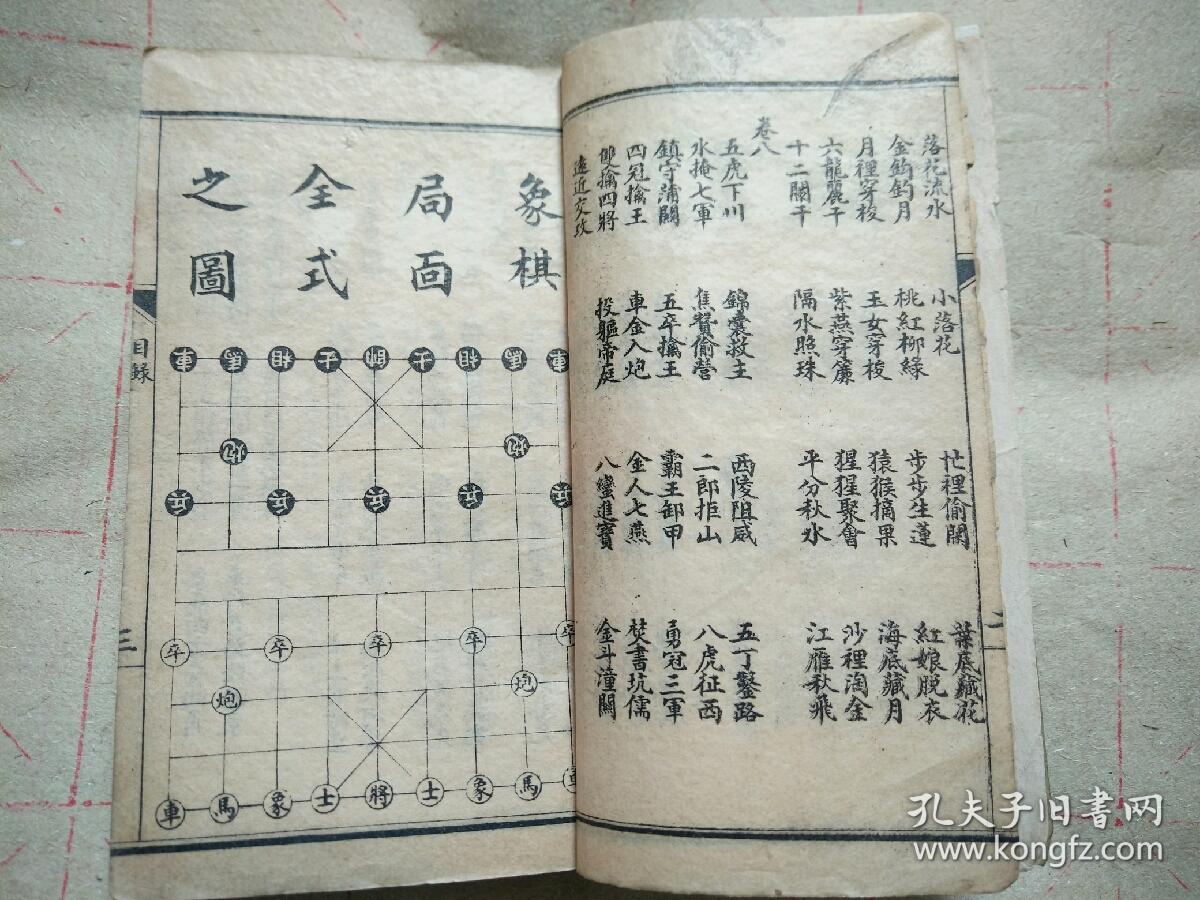 落花流水 小落花 忙裡偷閒 葉底藏花
金鈎釣月 桃紅柳綠 步步生蓮 紅娘脫衣
月裡穿梭 玉女穿梭 猿猴摘果 海底藏月
六龍麗干 紫燕穿簾 猩猩聚會 沙裡淘金
十二闌干 隔水照珠 平分秋水 江雁秋飛
卷八
五虎下川 錦囊救主 西陵阻威 五丁鑿路
水掩七軍 焦贊偷營 二郎拒山 八虎征西
鎮守蒲關 五卒擒王 霸王卸甲 勇冠三軍
四冠擒王 車金入炮 金人七燕 焚書坑儒
雙擒四將 投軀帝庭 八蠻進寶 金斗潼關
遠近交攻
二
象棋
局面
全式
之圖
車馬相士帥士相馬車
炮 炮
兵兵兵兵兵
卒卒卒卒卒
炮 炮
車馬象士將士象馬車
目錄
三
孔夫子旧书网
www.kongfz.com